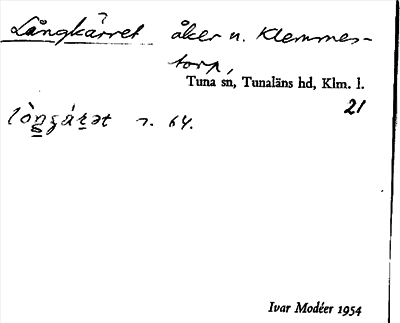 Långkärret åker u. Klemmes-
torp,
Tuna sn, Tunaläns hd, Klm. l.
21
64.
Ivar Modéer 1954